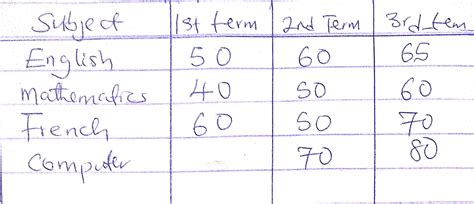 Subject 1st term 2nd Term 3rd tem
English 50 60 65
mathematics 40 50 60
French 60 50 70
Computer 70 80